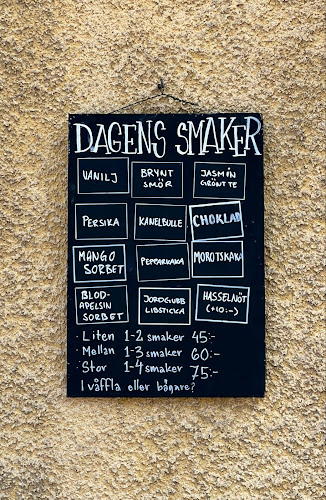 DAGENS SMAKER
VANILJ
BRYNT
SMÖR
JASMIN
GRÖNTTE
PERSIKA
KANELBULLE
CHOKLAD
MANGO
SORBET
PEPPARKAKA
MOROTSKAKA
BLOD-
APELSIN
SORBET
JORDGUBB
LIBSTICKA
HASSELNÖT
(+10:-)
· Liten 1-2 smaker 45:-
· Mellan 1-3 smaker 60:-
· Stor 1-4 smaker 75:-
I våffla eller bägare?